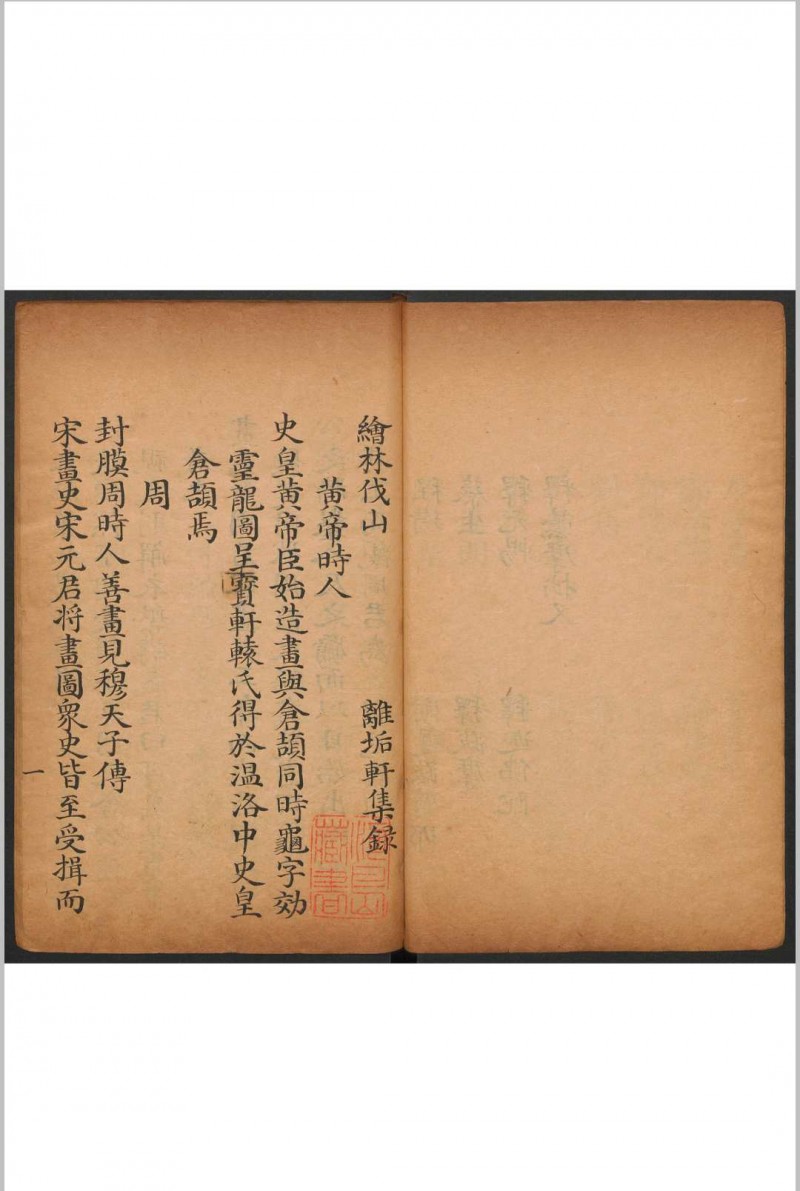 繪林伐山 離垢軒集録
黄帝時人
史皇黄帝臣始造畫與倉頡同時龜字効
靈龍圖呈寳軒轅氏得於温洛中史皇
倉頡焉
周
封膜周時人善畫見穆天子傳
宋畫史宋元君将畫圖衆史皆至受揖而
一
藏書